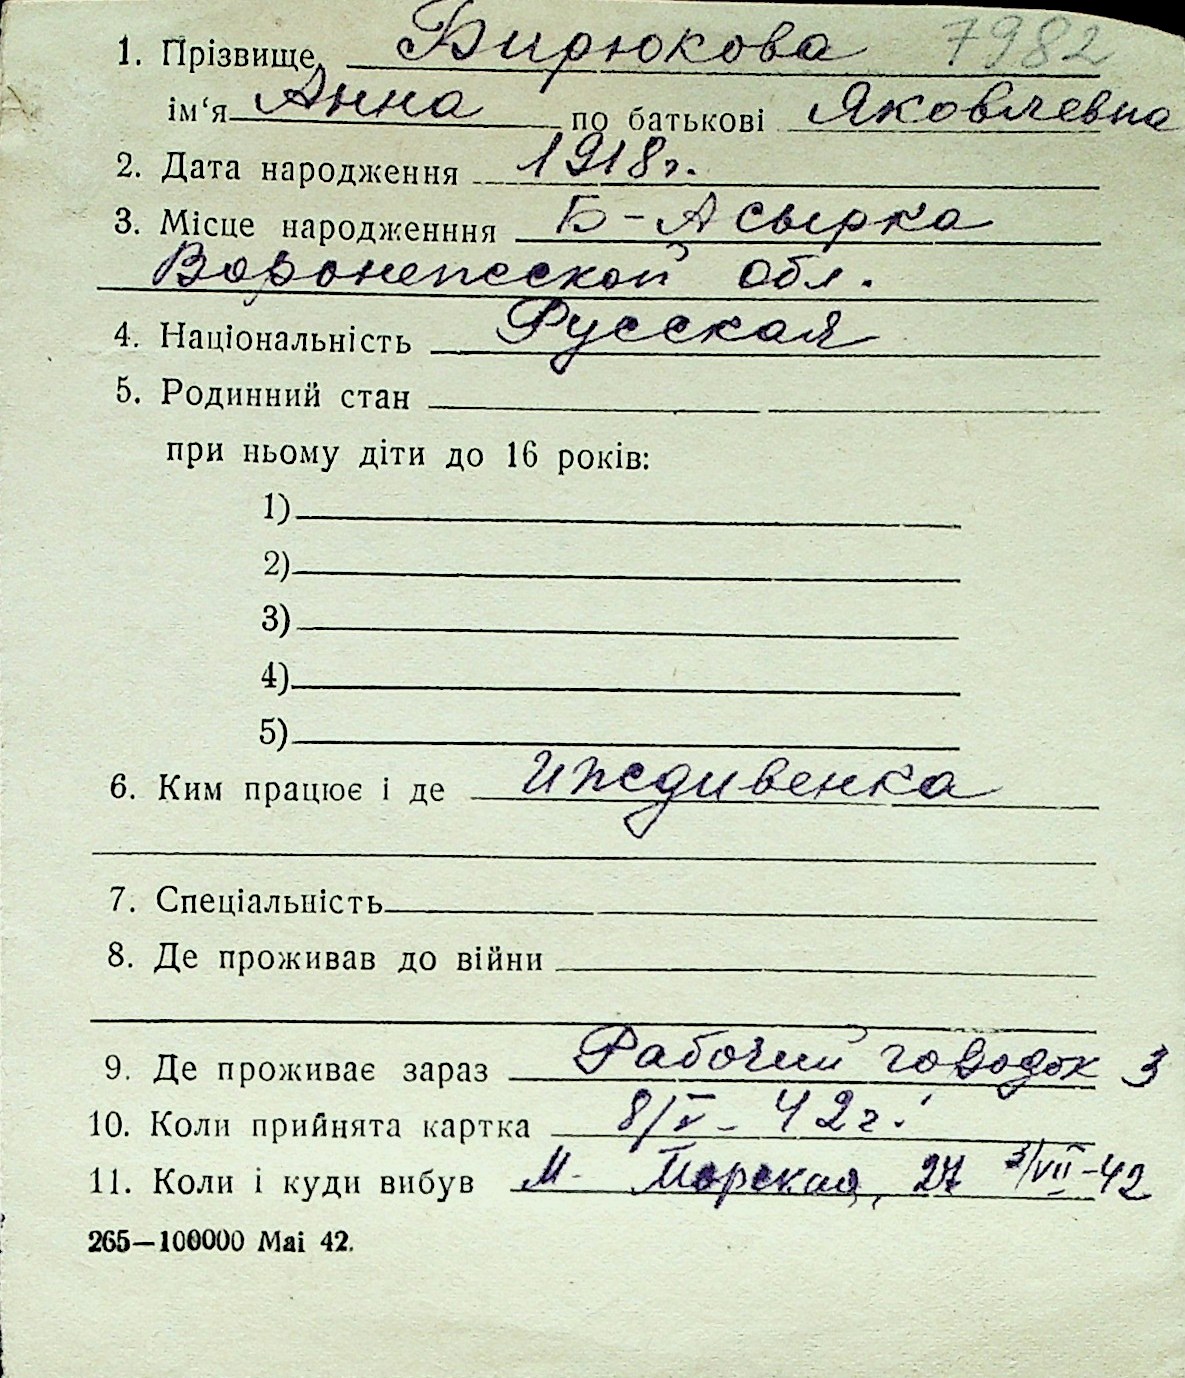 1. Прізвище Бирюкова 7982
ім‘я Анна по батькові Яковлевна
2. Дата народження 1918г.
3. Місце народженння Б-Асырка
Воронежской обл.
4. Національність Русская
5. Родинний стан
при ньому діти до 16 років:
1)
2)
3)
4)
5)
6. Ким працює і де иждивенка
7. Спеціальність
8. Де проживав до війни
9. Де проживає зараз Рабочий городок 3
10. Коли прийнята картка 8/V - 42г.
11. Коли і куди вибув М- Морская, 27 3/VII-42
265—100000 Mai 42.